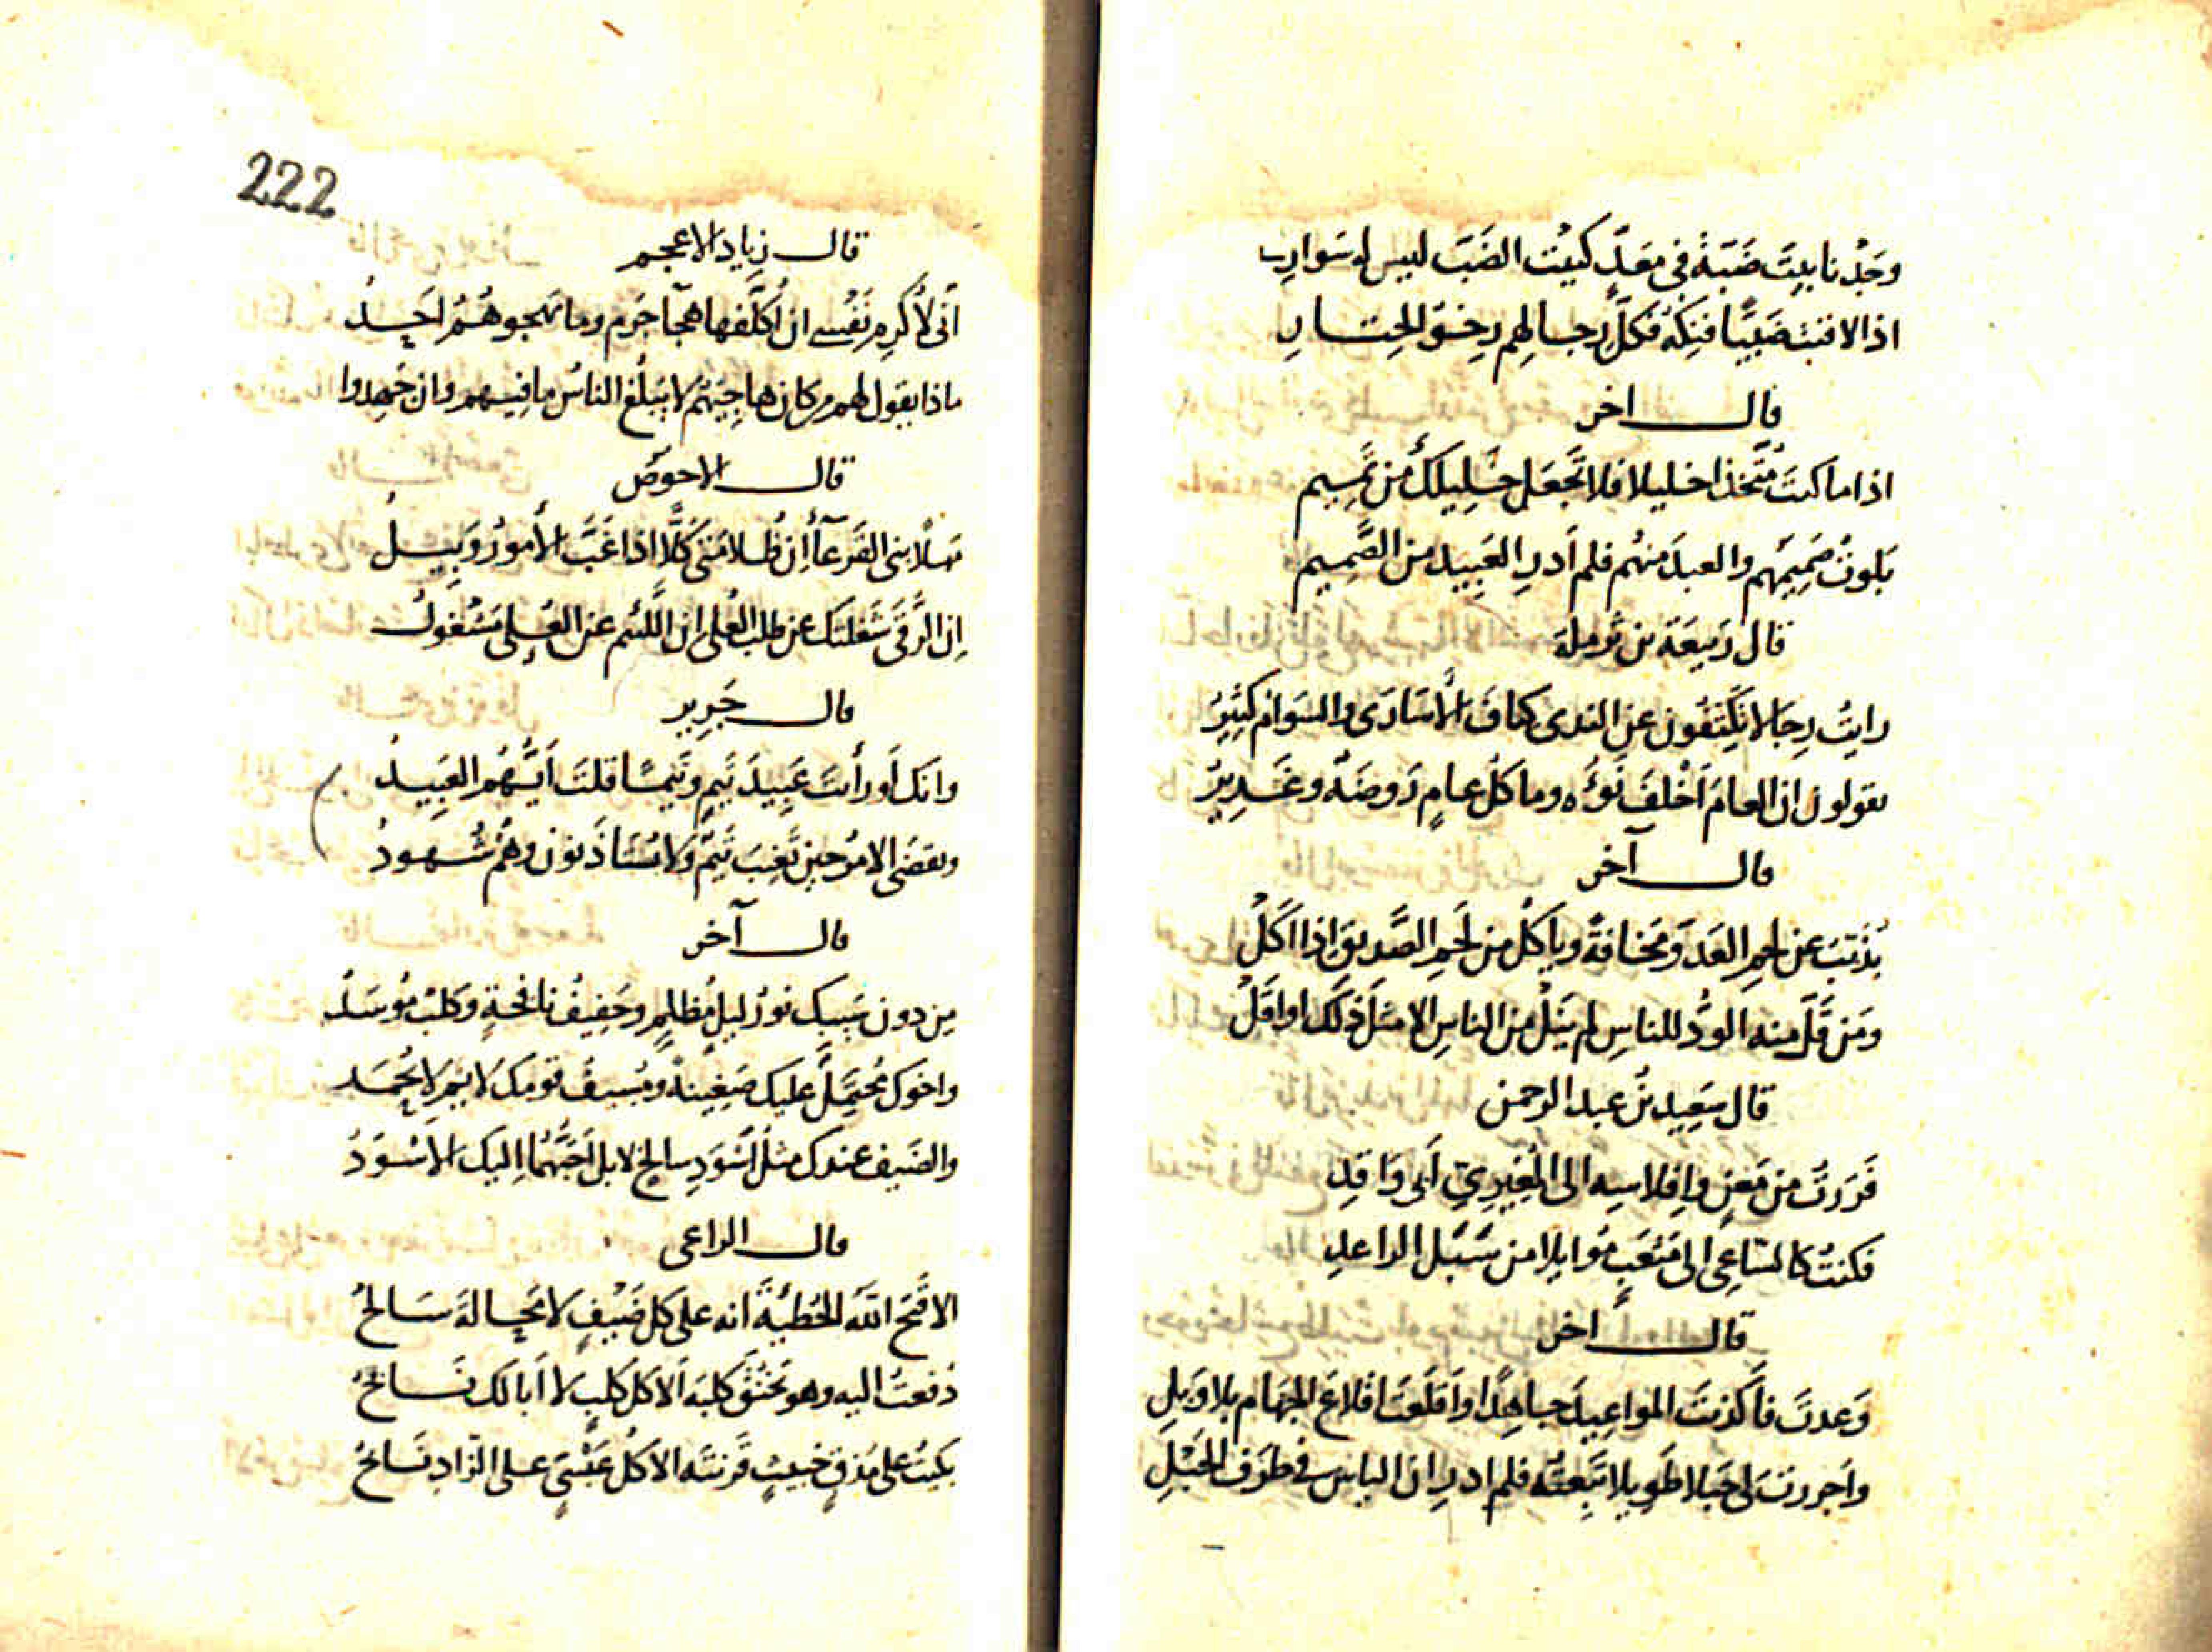 وجدنا بيت ضبة في معد كبيت الضب ليس له سوارى
اذا لاقيت ضبيا فنكه فكل رجالهم رخو الحتار
قال اخر
اذا ما كنت متخذا خليلا فلا تجعل خليلك من تميم
بلوت صميمهم والعبد منهم فلم ادر العبيد من الصميم
قال ربيعة بن ثرملة
رايت رجالا يكتفون عن الندى كتاف الأسارى والسوام كثير
يقولون ان العام اخلف نوءه وما كل عام روضة وغدير
قال آخر
يذبب عن لحم العدو مخافة وياكل من لحم الصديق اذا اكل
ومن قل منه الود للناس لم ينل من الناس الا مثل ذلك او اقل
قال سعيد بن عبد الرحمن
فررت من معن وإفلاسه الى المغيري ابى واقد
فكنت كالساعى الى مثعب موايلا من سبل الراعد
قال اخر
وعدت فأكذبت المواعيد جاهدا واقلعت اقلاع الجهام بلا وبل
واجررت لى حبلا طويلا تبعته فلم ادر ان الياس فى طرف الحبل
222
قال زياد الاعجم
انى لأكرم نفسى ان أكلفها هجآ جرم وما يهجوهم احد
ماذا يقول لهم من كان هاجيهم لا يبلغ الناس ما فيهم وان جهدوا
قال الاحوص
مهلا بنى القرعآ إن ظلامتى كلأ اذا غب الأمور وبيل
إن الرقى شغلتك عن طلب العلى إن اللئيم عن العلى مشغول
قال جرير
وانك لو رأيت عبيد تيم وتيما قلت ايهم العبيد
ويقضى الامر حين تغيب تيم ولا يستاذنون وهم شهود
قال آخر
من دون سيبك نور ليل مظلم وحفيف نافحة وكلب موسد
واخوك محتمل عليك ضغينة ومسيف قومك لائم لا يحمد
والضيف عندك مثل أسود سالخ لا بل احبهما اليك الاسود
قال الراعى
الا قبح الله الحطيئة انه على كل ضيف لا محالة سالح
دفعت اليه وهو يخنق كلبه الا كل كلب لا ابا لك نابح
بكيت على مذق خبيث قريته الا كل عبسى على الزاد نابح